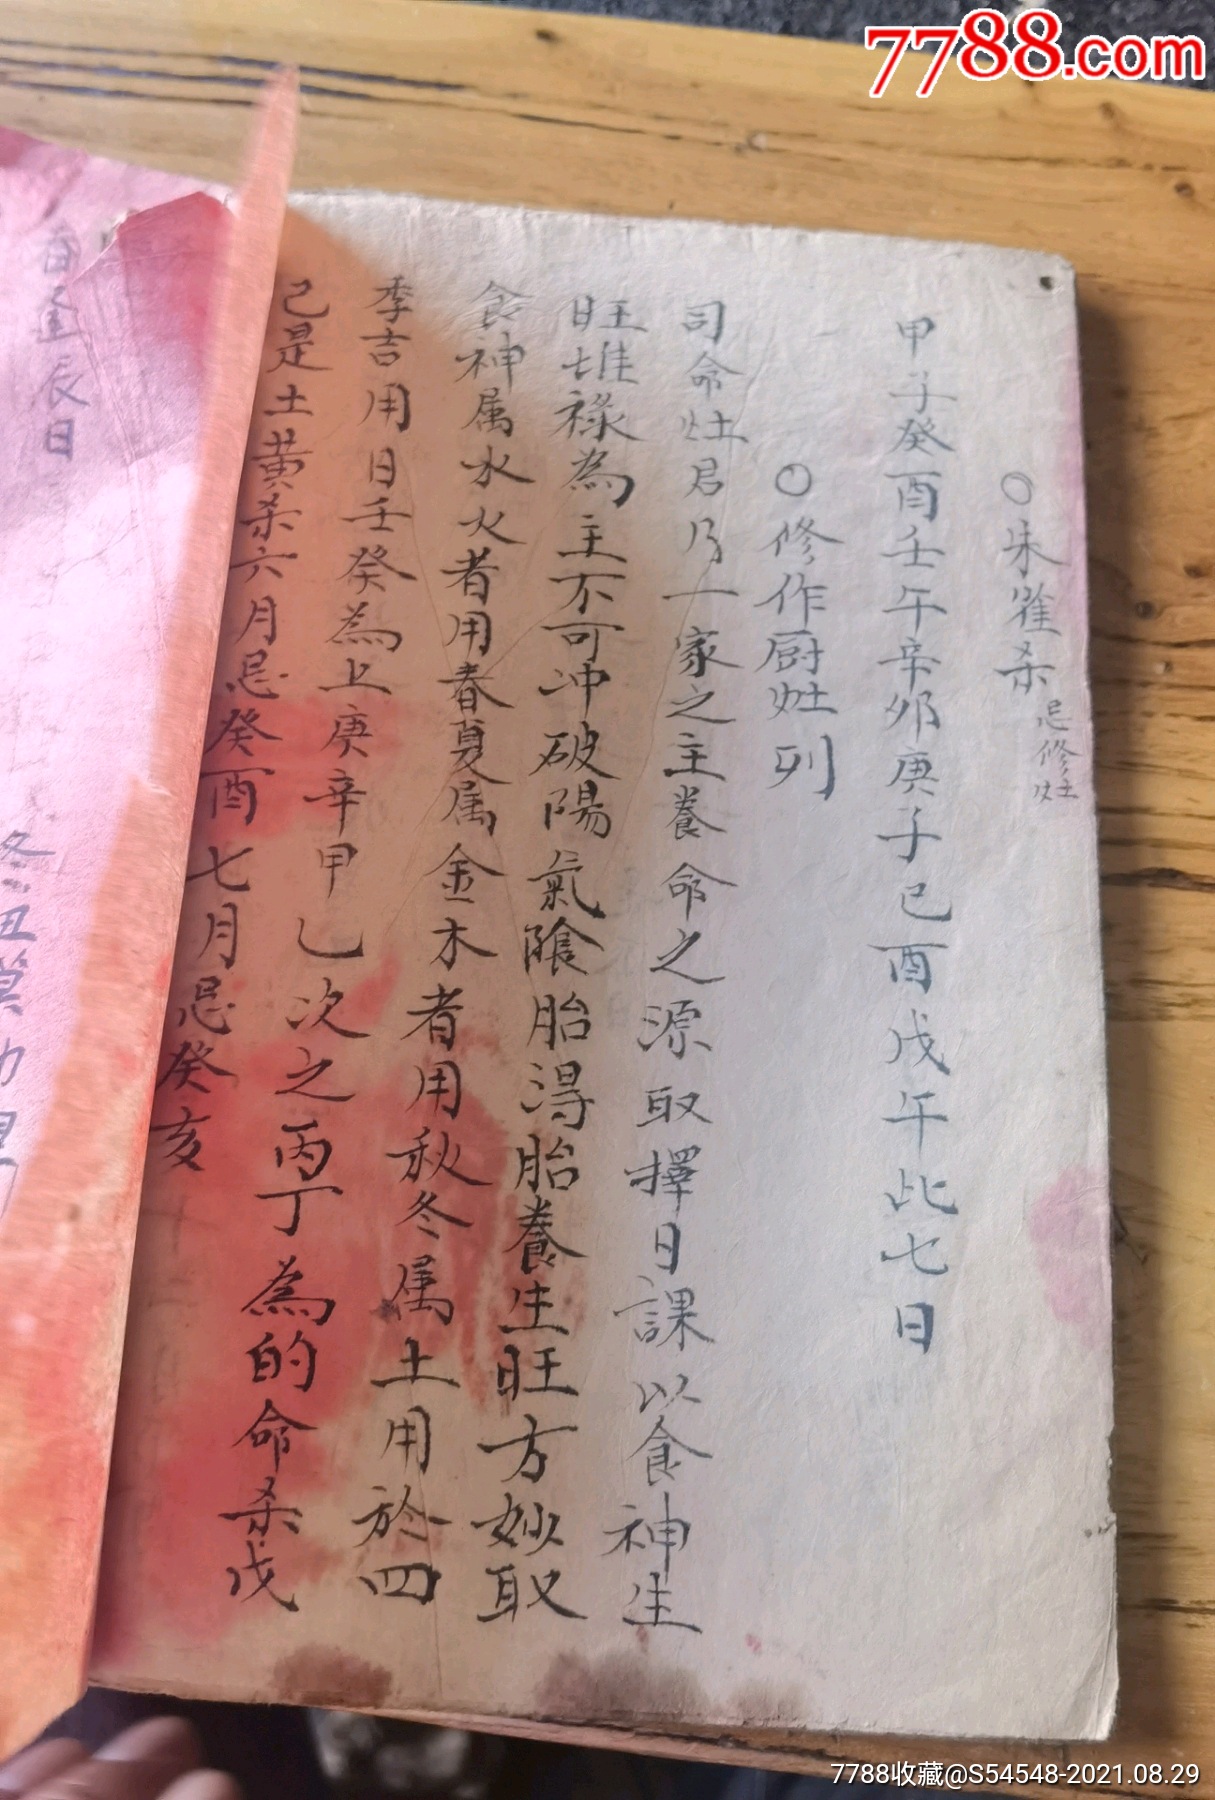 7788.com
○朱雀杀 忌修灶
甲子癸酉壬午辛卯庚子己酉戊午此七日
○修作厨灶列
司命灶君乃一家之主養命之源取擇日課以食神生
旺堆祿為主不可冲破陽氣陰胎得胎養生旺方妙取
食神属水火者用春夏属金木者用秋冬属土用於四
季吉用日壬癸為上庚辛甲乙次之丙丁為的命杀戊
己是土黄杀六月忌癸酉七月忌癸亥
辰日
7788收藏@S54548-2021.08.29